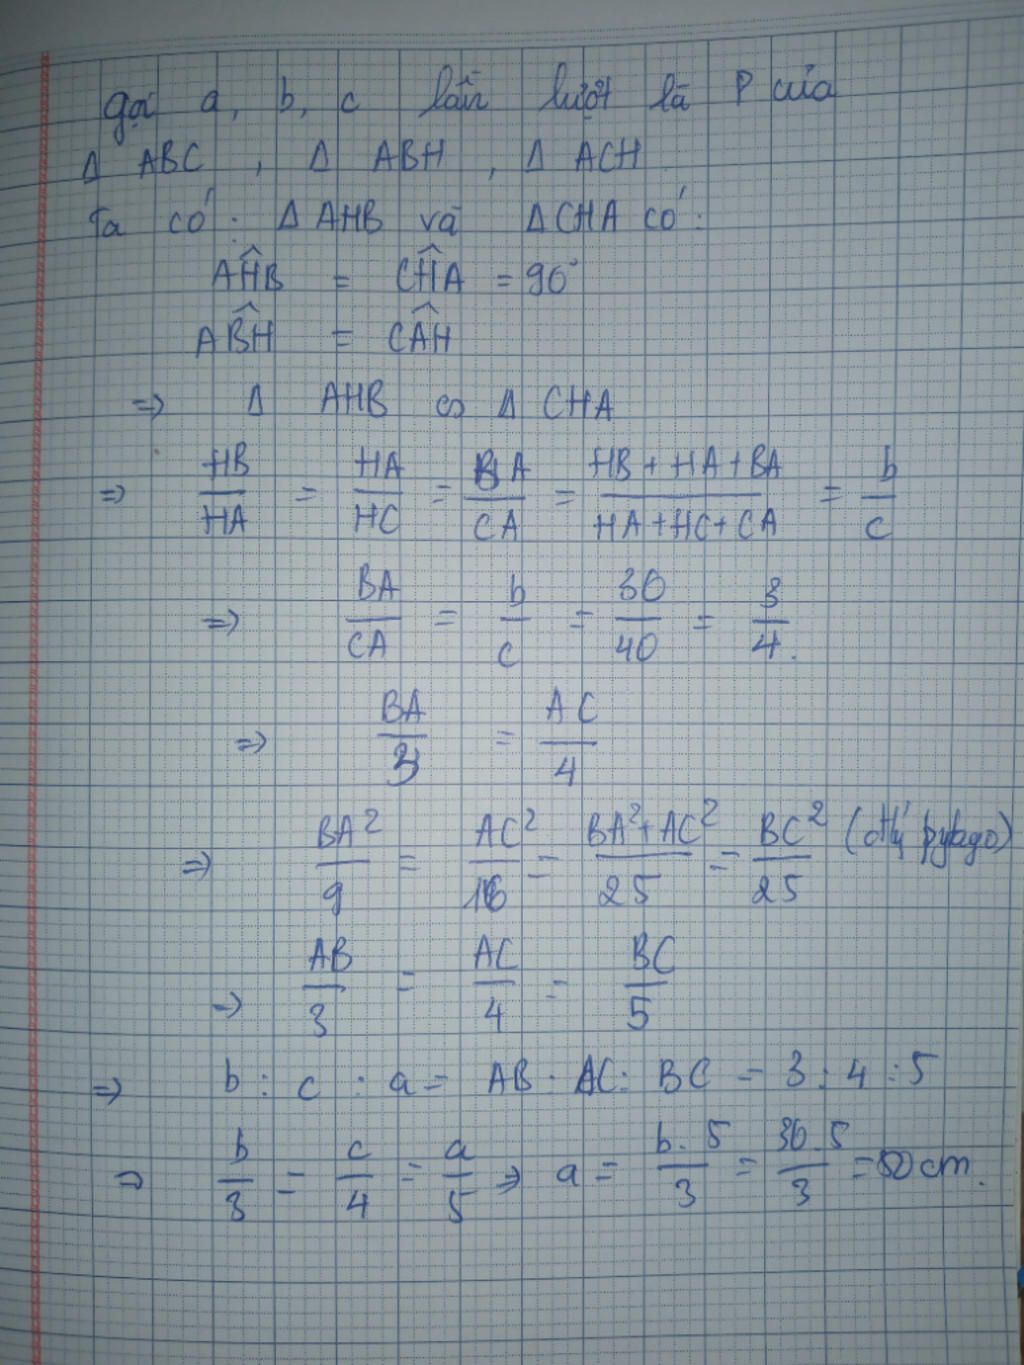 gọi a, b, c lần lượt là P của
Δ ABC , Δ ABH , Δ ACH
Ta có : Δ AHB và Δ CHA có :
AĤB = CĤA = 90°
AB̂H = CÂH
=> Δ AHB ∽ Δ CHA
=> HB/HA = HA/HC = BA/CA = (HB + HA + BA)/(HA + HC + CA) = b/c
=> BA/CA = b/c = 30/40 = 3/4.
=> BA/3 = AC/4
=> BA²/9 = AC²/16 = (BA² + AC²)/25 = BC²/25 (đlý pytago)
=> AB/3 = AC/4 = BC/5
=> b : c : a = AB : AC : BC = 3 : 4 : 5
=> b/3 = c/4 = a/5 => a = (b . 5)/3 = (30 . 5)/3 = 50 cm.